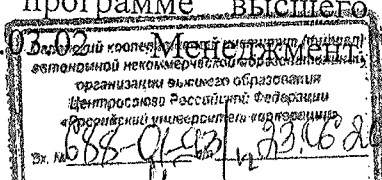 программе высшего
.03.02 Менеджмент
кооперативный (филиал)
автономной некоммерческой образовательной
организации высшего образования
Центросоюза Российской Федерации
«Российский университет кооперации»
Вх. № 688-01-93